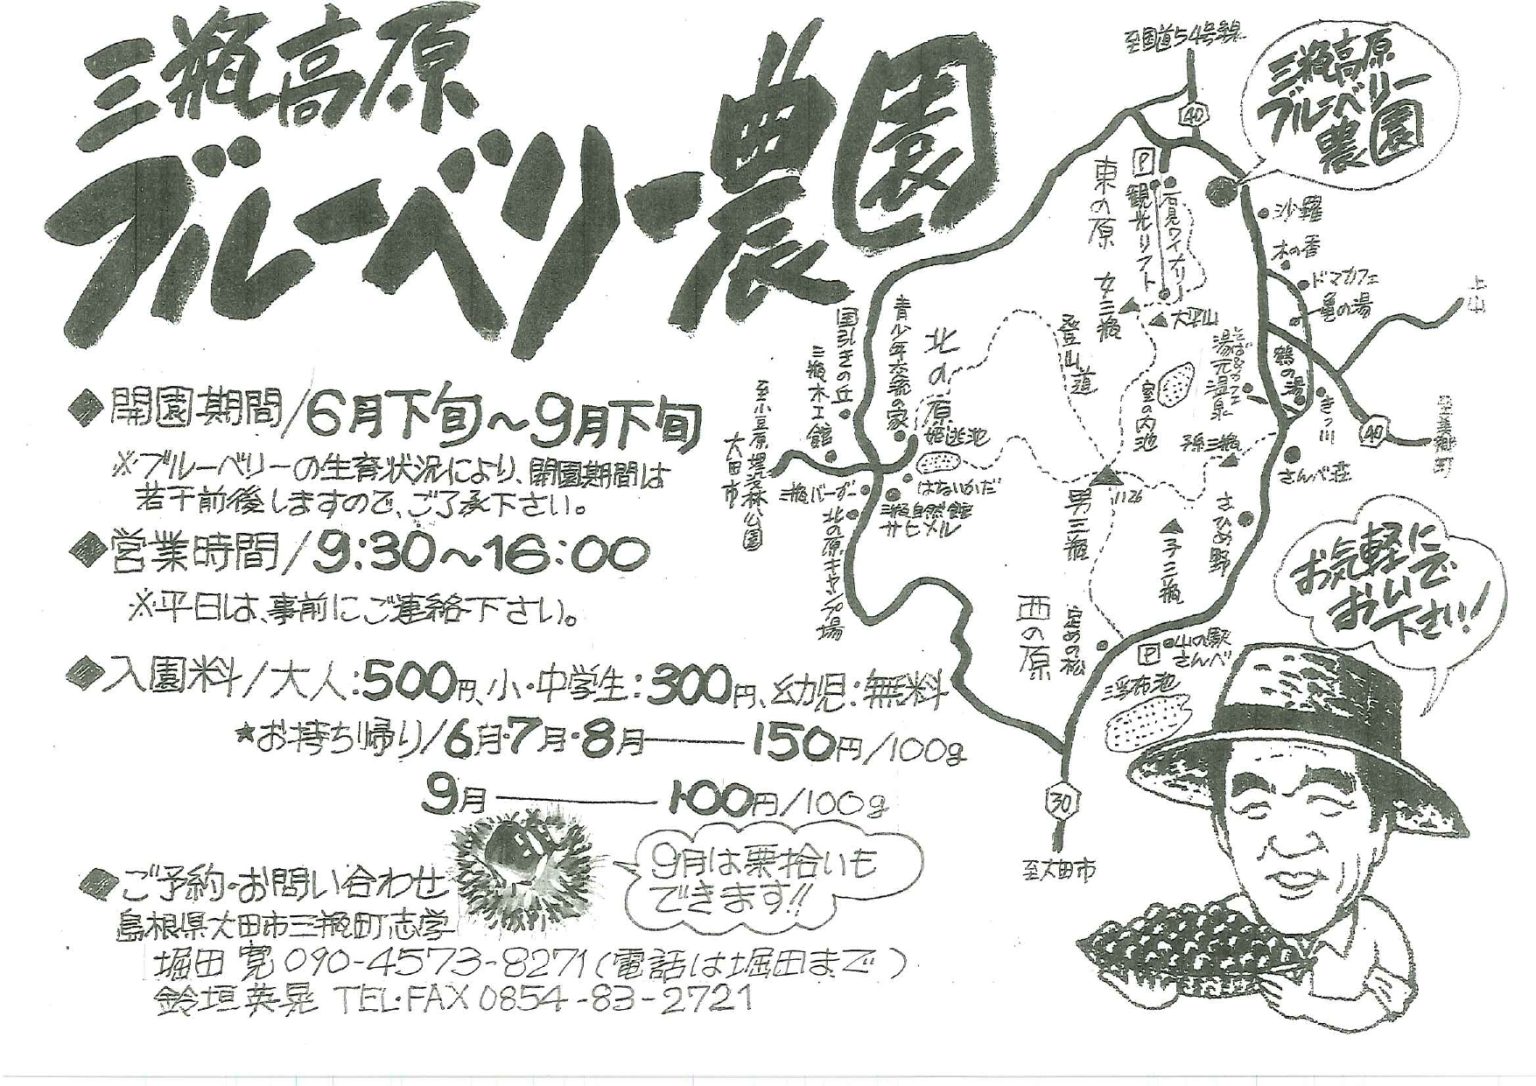 三瓶高原
ブルーベリー農園
◆開園期間/6月下旬~9月下旬
※ブルーベリーの生育状況により、開園期間は
若干前後しますので、ご了承下さい。
◆営業時間/9:30~16:00
※平日は、事前にご連絡下さい。
◆入園料/大人:500円、小・中学生:300円、幼児:無料
★お持ち帰り/6月・7月・8月――150円/100g
9月――100円/100g
9月は栗拾いも
できます!!
◆ご予約・お問い合わせ
島根県大田市三瓶町志学
堀田 寛 090-4573-8271(電話は堀田まで)
鈴垣英晃 TEL・FAX 0854-83-2721
至国道54号線
40
三瓶高原
ブルーベリー
農園
P
東の原
観光リフト
石見ワイナリー
沙羅
木の香
ドマカフェ
亀の湯
上山
女三瓶
大平山
登山道
室の内池
そば&カフェ
湯元温泉
鶴の湯
きっ川
40
至美郷町
さんべ荘
孫三瓶
男三瓶
1126
さひめ野
子三瓶
北の原
姫逃池
はないかだ
青少年交流の家
国引きの丘
三瓶木工館
至小豆原埋没林公園
大田市
三瓶バーガー
三瓶自然館
サヒメル
北の原キャンプ場
西の原
定めの松
P
山の駅
さんべ
浮布池
30
至大田市
お気軽に
おいで
下さい!